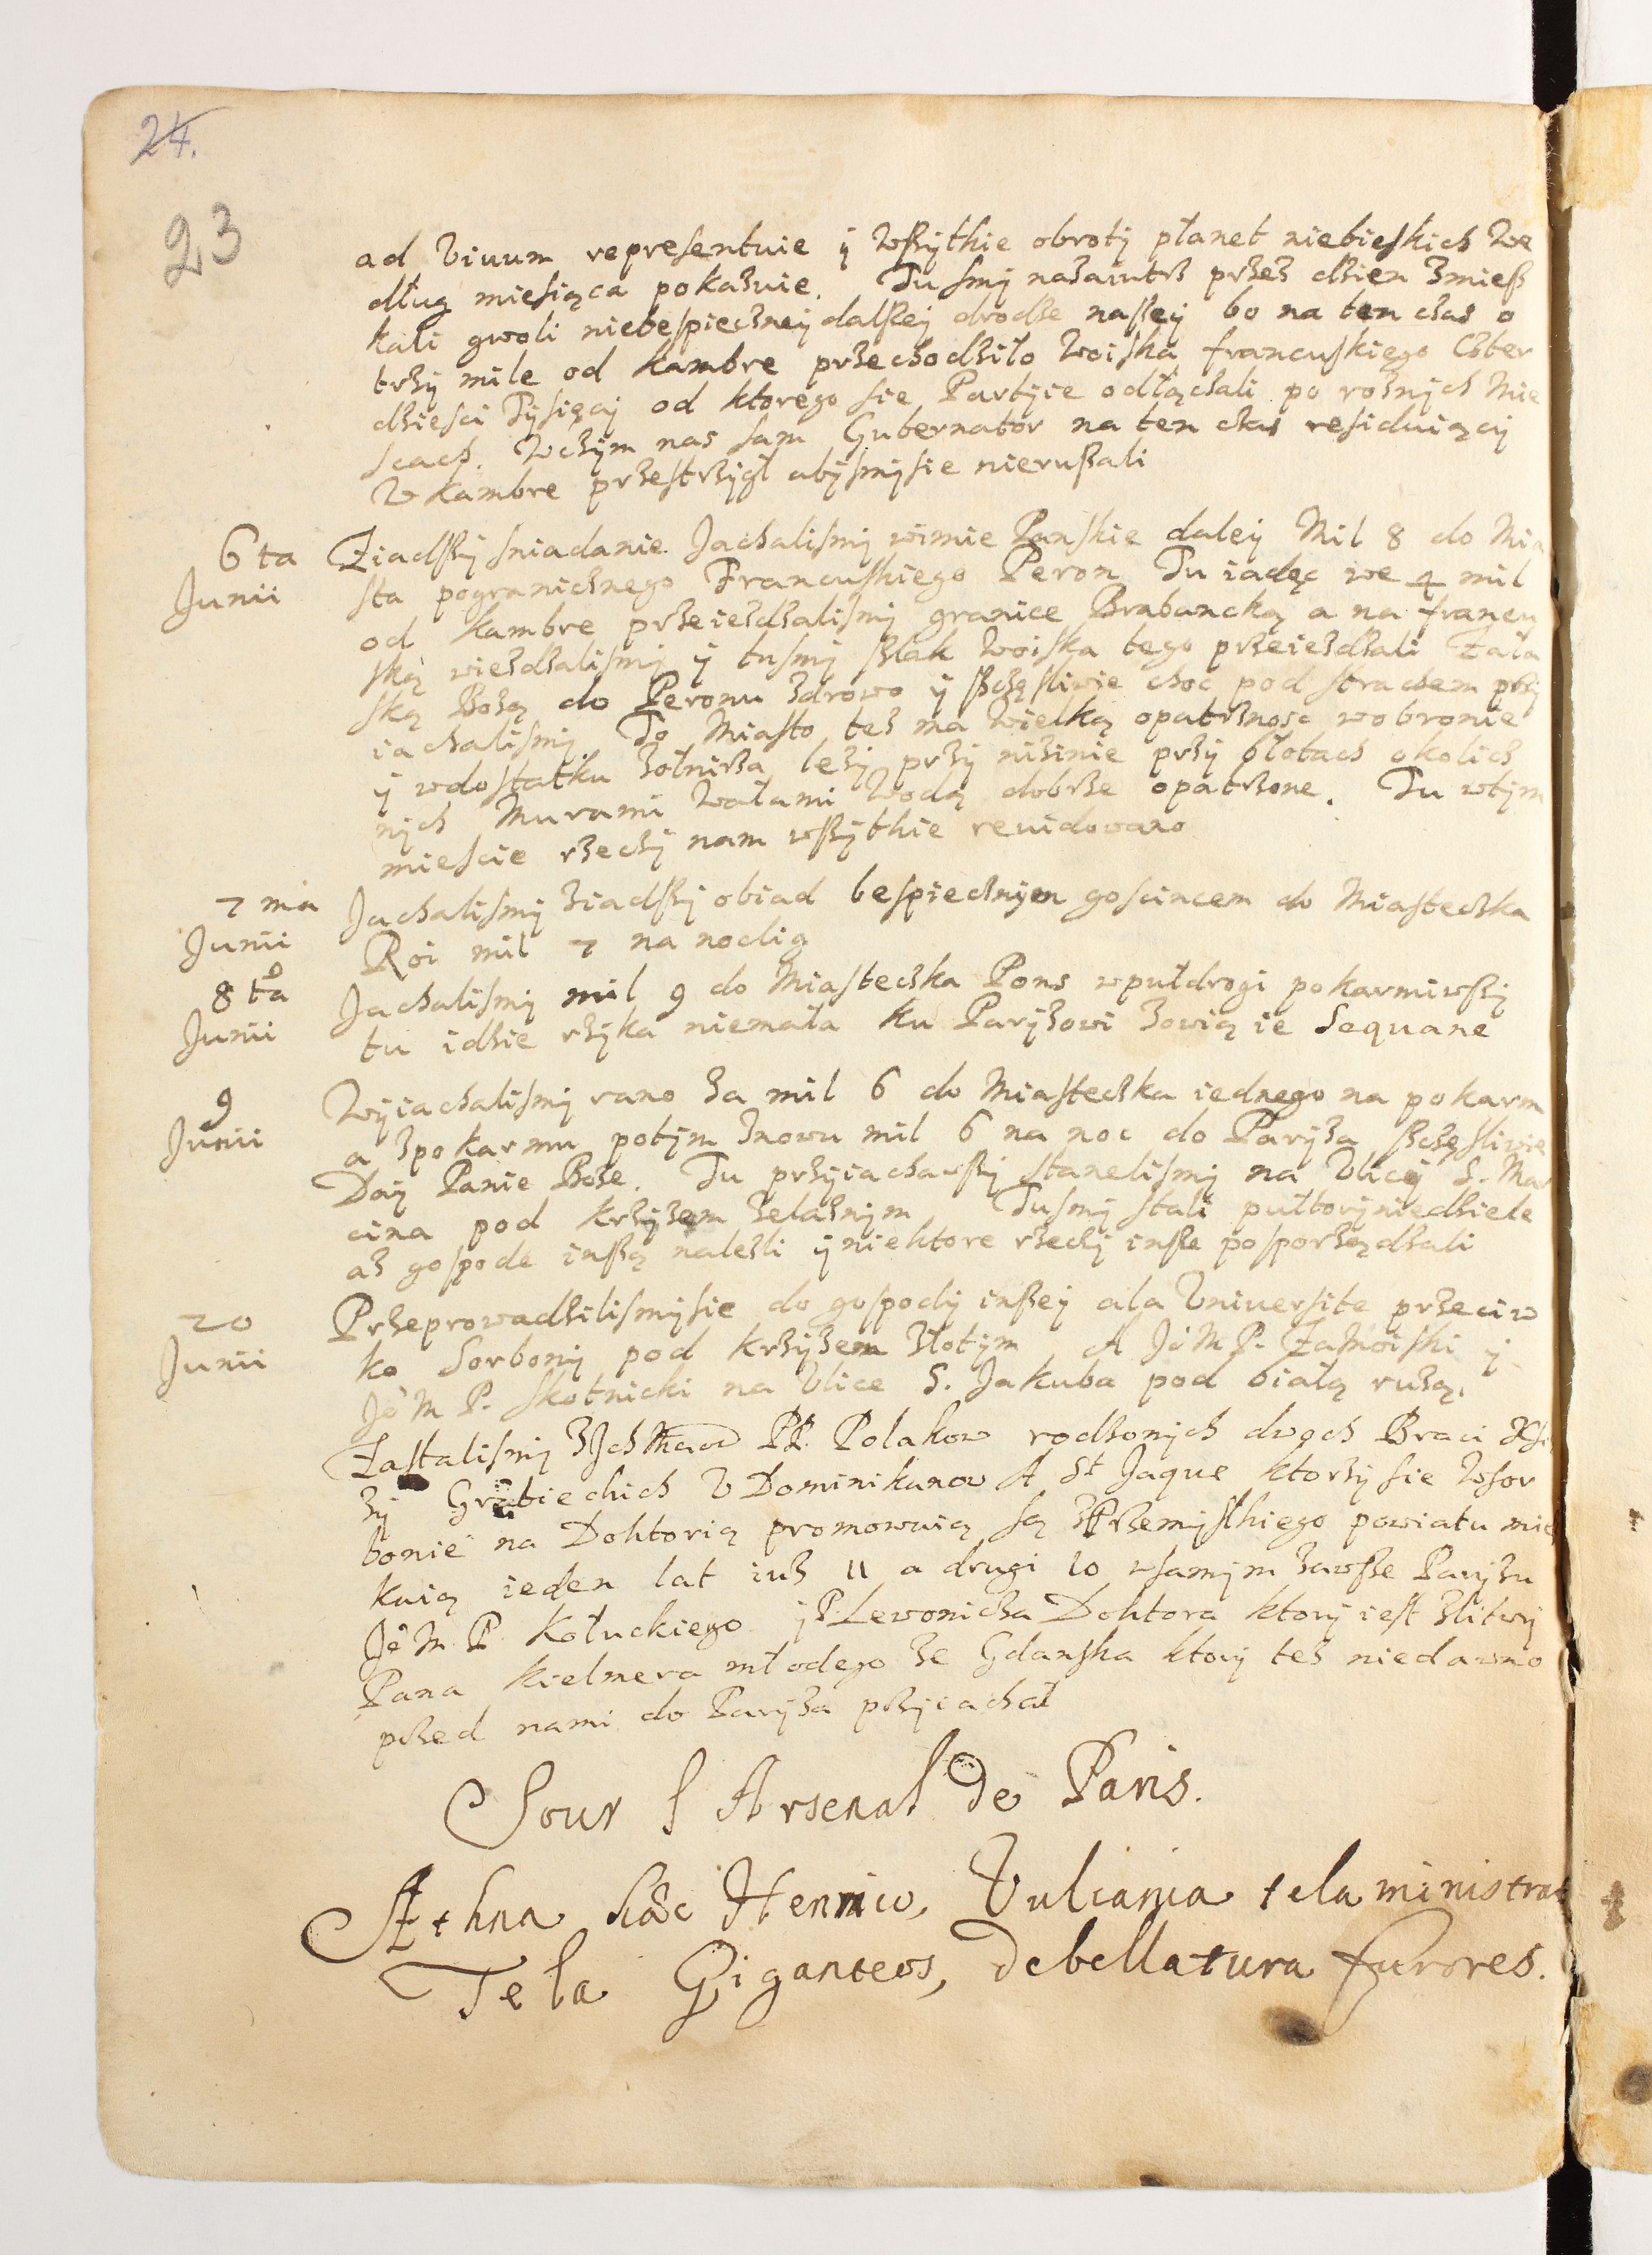 24.
23
ad viuum representuie ÿ wszÿthie obrotÿ płanet niebieskich We
dług miesiąca pokazuie. Tu smÿ nazaiutrz przez dzien zmiesz
kali gwoli niebespiecznej dalszej drodze naszeÿ bo na ten czas o
trzÿ mile od Kambre przechodziło Woiska francuskiego Czter
dziesci Tÿsięcÿ od ktorego sie Partÿie odłączali po roznÿch Mie
scach. Wczÿm nas sam Gubernator na ten czas residuiącÿ
W Kambre przestrzÿgł abÿsmÿsie nieruszali
6 ta Junii
Ziadszÿ sniadanie Jachalismÿ wimie Panskie daleÿ Mil 8 do Mia
sta pogranicznego Francuskiego Peron Tu iadęc we 4 mil
od Kambre przeiezdzalismÿ granice Brabancką a na francu
ską wiezdzalismÿ ÿ tusmÿ szlak Woiska tego przeiezdzali Zała
ską Bozą do Peronu zdrowo ÿ szczęsliwie choc pod strachem przÿ
iachalismÿ. To Miasto tez ma Wielką opatrznosc wobronie
ÿ wdostatku zołnirza lezÿ przÿ nizinie przÿ błotach okolicz
nÿch Murami Wałami Wodą dobrze opatrzone. Tu wtÿm
miescie rzeczÿ nam wszÿthie reuidowano
7 ma Junii
Jachalismÿ ziadszÿ obiad bespiecznÿm goscincem do Miasteczka
Roi mil 7 na noclig
8 ta Junii
Jachalismÿ mil 9 do Miasteczka Pons wpułdrogi pokarmiwszÿ
tu idzie rzÿka niemała ku Parÿzowi zowią ie Sequane
9 Junii
Wÿiachalismÿ rano za mil 6 do Miasteczka iednego na pokarm
a zpokarmu potÿm znowu mil 6 na noc do Parÿza szczęsliwie
Daÿ Panie Boze. Tu przÿiachawszÿ stanelismÿ na Vlicÿ S. Mar
cina pod krzÿzem zelaznÿm Tusmÿ stali pułtorÿniedziele
az gospode inszą nalezli ÿ niektore rzeczÿ insze posporządzali
20 Junii
Przeprowadzilismÿsie do gospodÿ inszeÿ ala Vniuersite przeciw
ko Sorbonÿ pod krzÿzem złotÿm A Je M P. Zamoiski ÿ
Je M P. Skotnicki na Vlice S. Jakuba pod białą ruzą.
Zastalismÿ PP. Polakow rodzonÿch dwoch Braci
zÿ V Dominikanow A St Jaque ktorzÿ sie Wsor
bonie na Dohtorią promowuią są zPrzemÿslkiego powiatu mie
kaią ieden lat iuz 11 a drugi 10 wsamÿm zawsze Parÿzu
Je M. P. Kołuckiego ÿ P. Lewonicza Dohtora ktorÿ iest zlitwÿ
Pana Kielmera młodego ze Gdanska ktorÿ tez niedawno
przed nami do Parÿza przÿiachał
Sour l Arsenal De Paris.
Æthna hæc Henrico, Vulcania tela ministrat
Tela Giganteos, Debellatura furores.